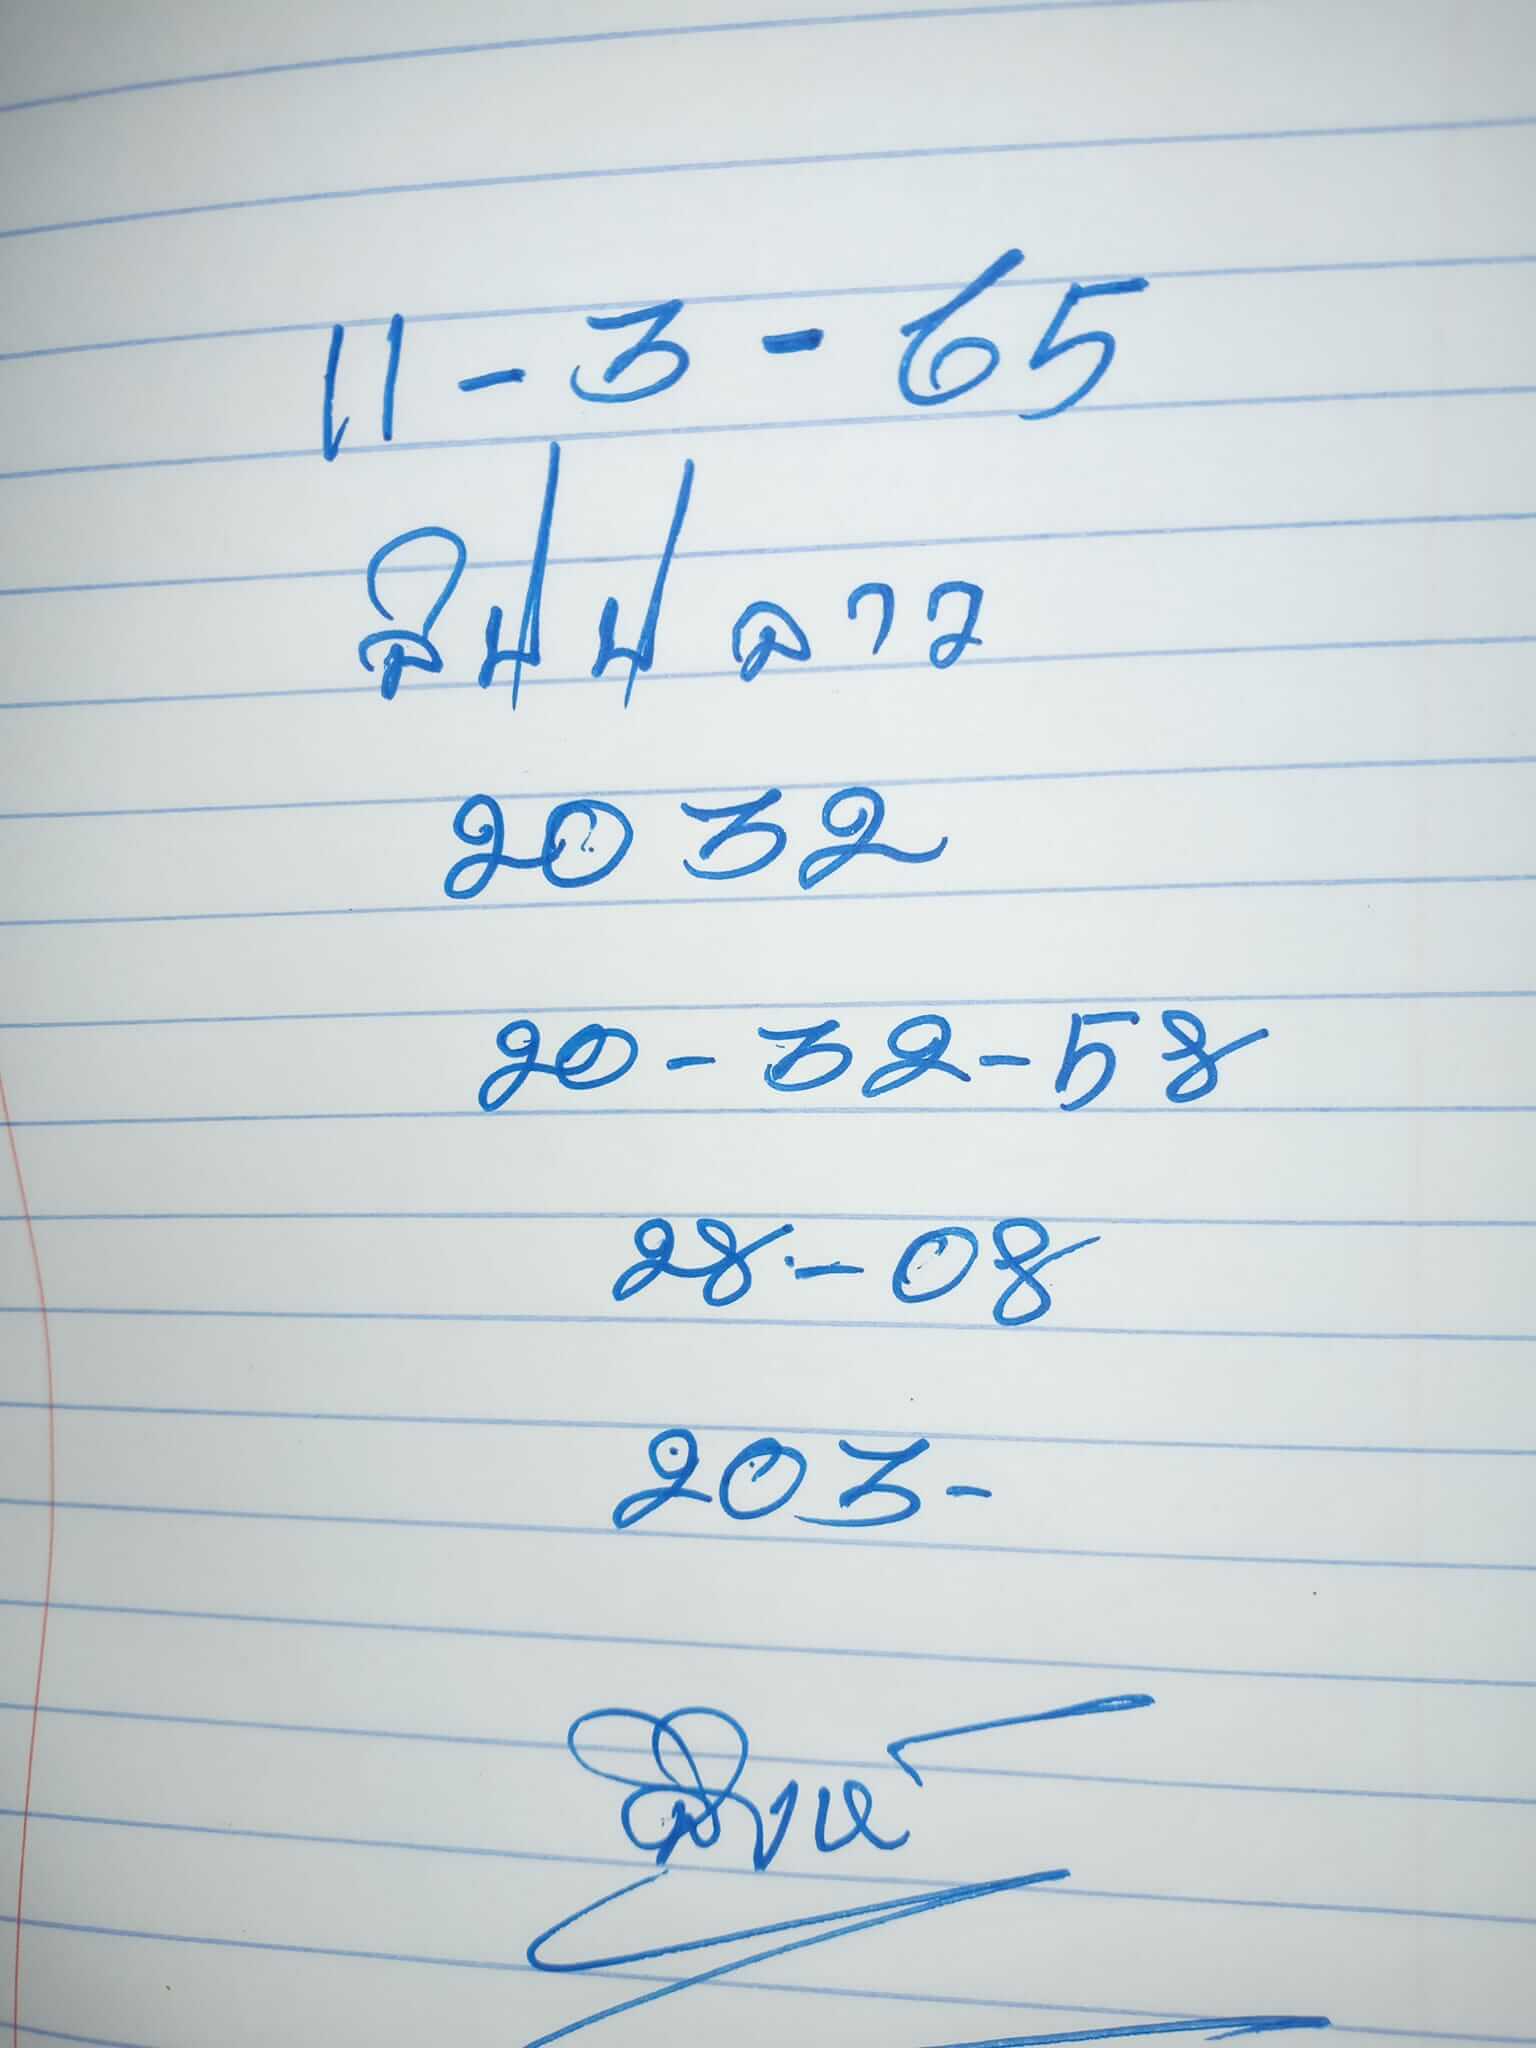 11-3-65
ลิปปลาว
2032
20-32-58
28-08
203-
สิงห์